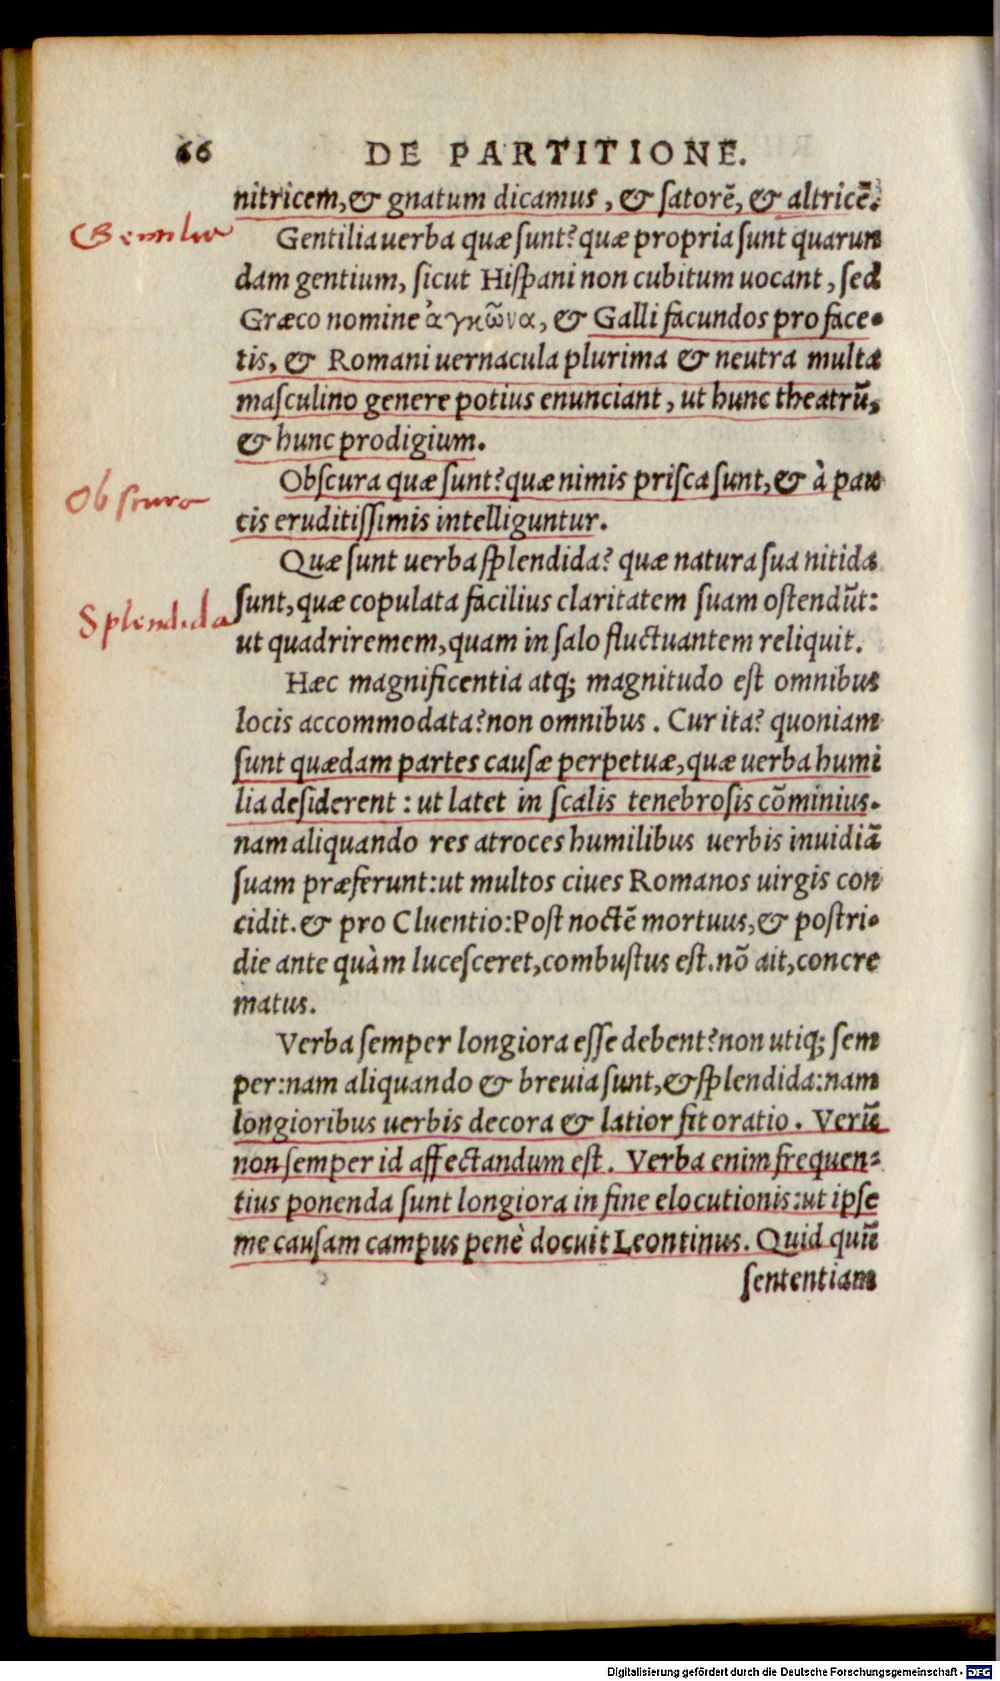 66 DE PARTITIONE.
nitricem, & gnatum dicamus, & ſatorē, & altricē.
Gentilia
Gentilia uerba quæ ſunt? quæ propria ſunt quarun
dam gentium, ſicut Hiſpani non cubitum uocant, ſed
Græco nomine ἀγκῶνα, & Galli facundos pro face-
tis, & Romani uernacula plurima & neutra multa
maſculino genere potius enunciant, ut hunc theatrū,
& hunc prodigium.
Obscura
Obſcura quæ ſunt? quæ nimis priſca ſunt, & à pau
cis eruditiſſimis intelliguntur.
Quæ ſunt uerba ſplendida? quæ natura ſua nitida
Splendida
ſunt, quæ copulata facilius claritatem ſuam oſtendūt:
ut quadriremem, quam in ſalo fluctuantem reliquit.
Hæc magnificentia atq; magnitudo eſt omnibus
locis accommodata? non omnibus. Cur ita? quoniam
ſunt quædam partes cauſæ perpetuæ, quæ uerba humi
lia deſiderent: ut latet in ſcalis tenebroſis cōminius.
nam aliquando res atroces humilibus uerbis inuidiā
ſuam præferunt: ut multos ciues Romanos uirgis con
cidit. & pro Cluentio: Poſt noctē mortuus, & poſtri-
die ante quàm luceſceret, combuſtus eſt. nō ait, concre
matus.
Verba ſemper longiora eſſe debent? non utiq; ſem
per: nam aliquando & breuia ſunt, & ſplendida: nam
longioribus uerbis decora & latior fit oratio. Verū
non ſemper id affectandum eſt. Verba enim frequen-
tius ponenda ſunt longiora in fine elocutionis: ut ipſe
me cauſam campus penè docuit Leontinus. Quid quū
ſententiam
Digitalisierung gefördert durch die Deutsche Forschungsgemeinschaft - DFG